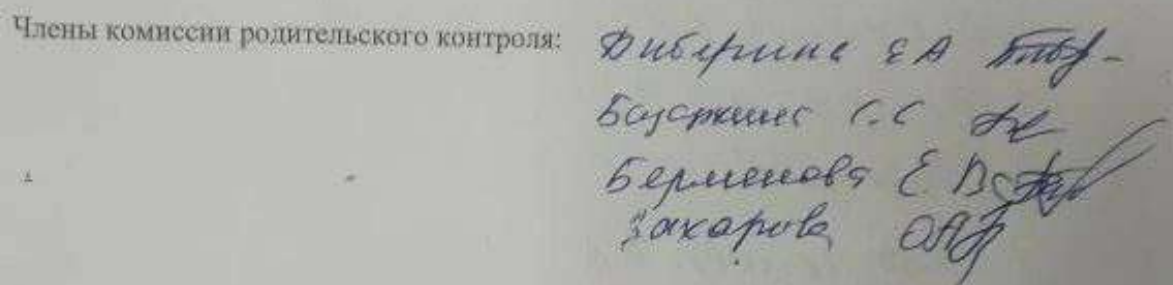 Члены комиссии родительского контроля: Диберина ЕА
Базаркина С.С
Берменова Е В
Захарова ОА